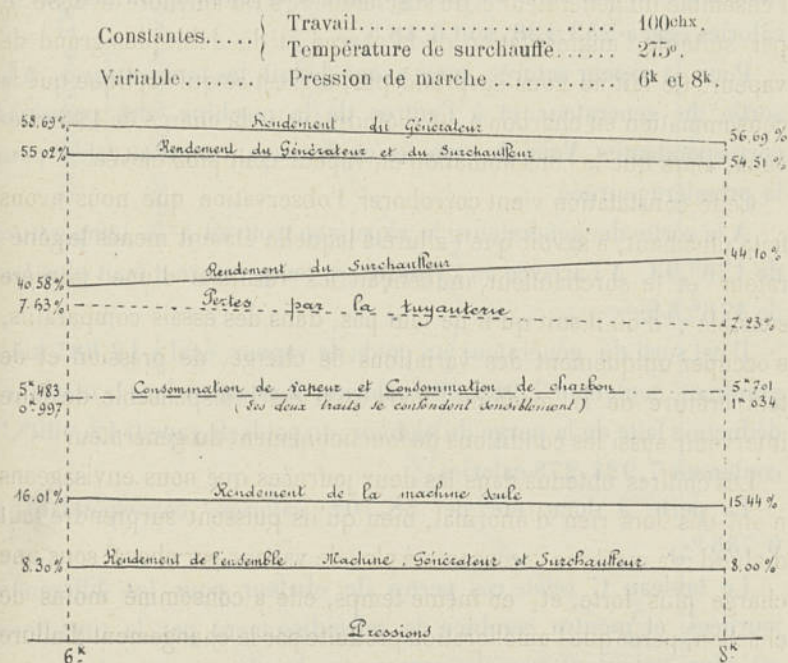 Constantes.... { Travail.................................. 100chx.
Température de surchauffe...... 275°.
Variable....... Pression de marche.............. 6k et 8k.
58.69% Rendement du Générateur 56.69 %
55 02% Rendement du Générateur et du Surchauffeur 54.51 %
40.58% Rendement du Surchauffeur 44.10 %
7.63% Pertes par la tuyauterie 7.23%
5k483 Consommation de vapeur et Consommation de charbon 5k701
0k997 (Les deux traits se confondent sensiblement) 1k034
16.01% Rendement de la machine seule 15.44%
8.30% Rendement de l'ensemble Machine, Générateur et Surchauffeur 8.00%
Pressions
6k 8k